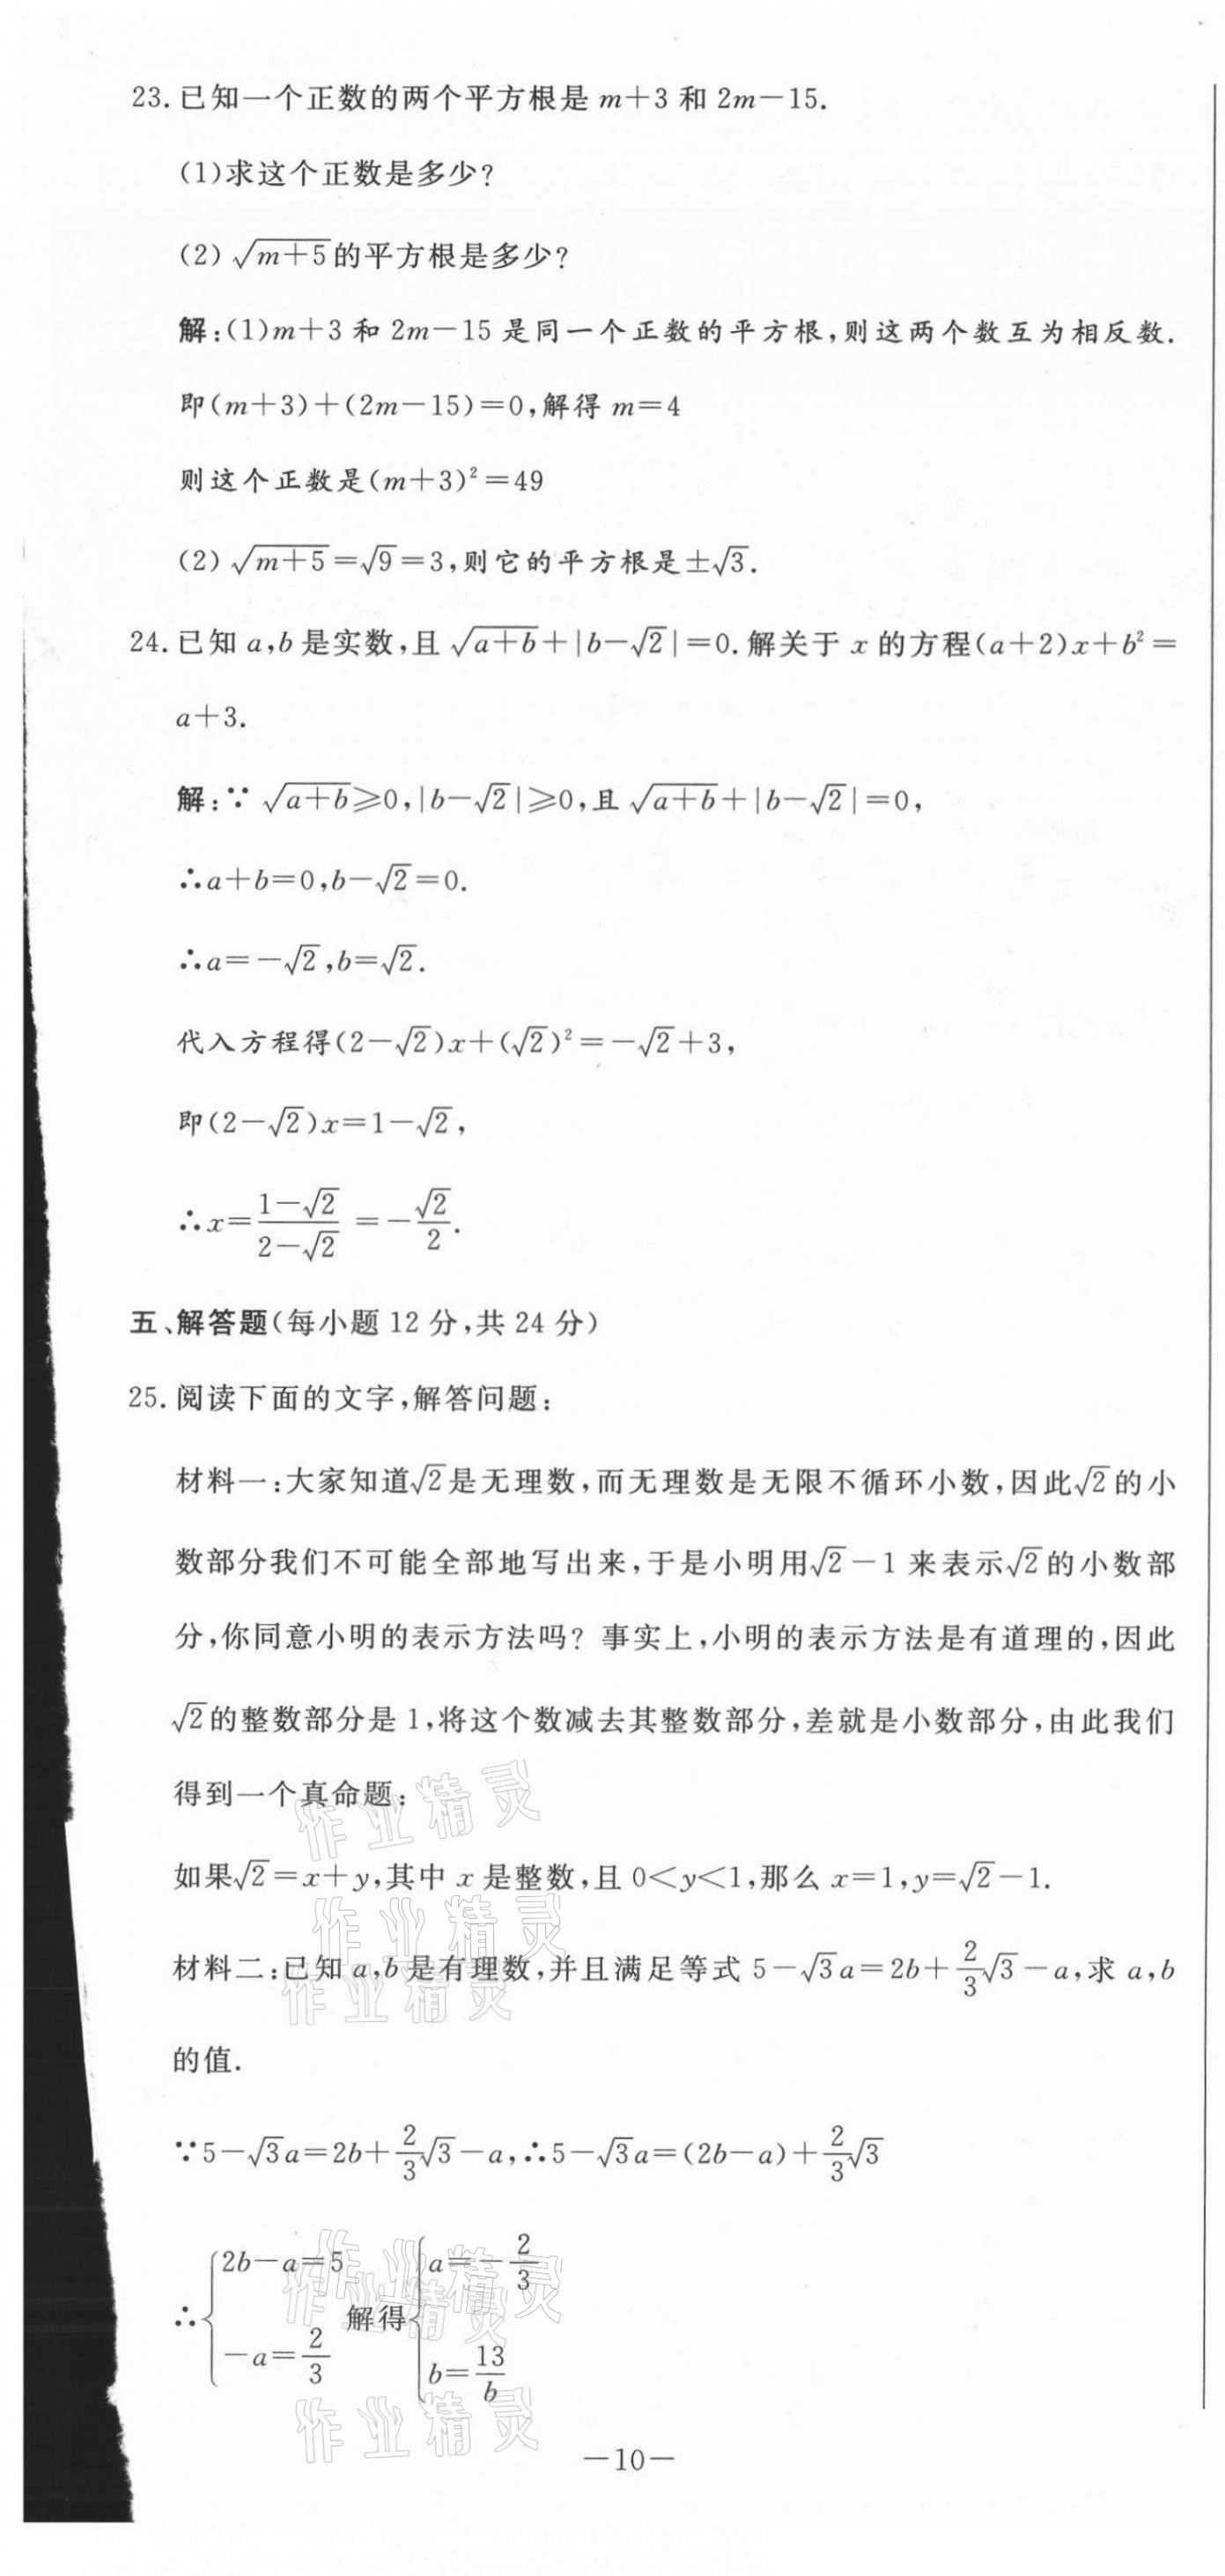 23. 已知一个正数的两个平方根是 m+3 和 2m-15.
(1)求这个正数是多少?
(2) √(m+5)的平方根是多少?
解:(1)m+3 和 2m-15 是同一个正数的平方根,则这两个数互为相反数.
即(m+3)+(2m-15)=0,解得 m=4
则这个正数是(m+3)²=49
(2) √(m+5)=√9=3,则它的平方根是±√3.
24. 已知 a,b 是实数,且 √(a+b)+|b-√2|=0. 解关于 x 的方程(a+2)x+b²=
a+3.
解:∵ √(a+b)≥0,|b-√2|≥0,且 √(a+b)+|b-√2|=0,
∴a+b=0,b-√2=0.
∴a=-√2,b=√2.
代入方程得(2-√2)x+(√2)²=-√2+3,
即(2-√2)x=1-√2,
∴x=(1-√2)/(2-√2)=-√2/2.
五、解答题(每小题 12 分,共 24 分)
25. 阅读下面的文字,解答问题:
材料一:大家知道√2是无理数,而无理数是无限不循环小数,因此√2的小
数部分我们不可能全部地写出来,于是小明用√2-1 来表示√2的小数部
分,你同意小明的表示方法吗? 事实上,小明的表示方法是有道理的,因此
√2的整数部分是 1,将这个数减去其整数部分,差就是小数部分,由此我们
得到一个真命题:
如果√2=x+y,其中 x 是整数,且 0<y<1,那么 x=1,y=√2-1.
材料二:已知 a,b 是有理数,并且满足等式 5-√3a=2b+2/3√3-a,求 a,b
的值.
∵5-√3a=2b+2/3√3-a,∴5-√3a=(2b-a)+2/3√3
∴{2b-a=5 -a=2/3 解得{a=-2/3 b=13/b
作业精灵
作业精灵
作业精灵
作业精灵
作业精灵
作业精灵
—10—